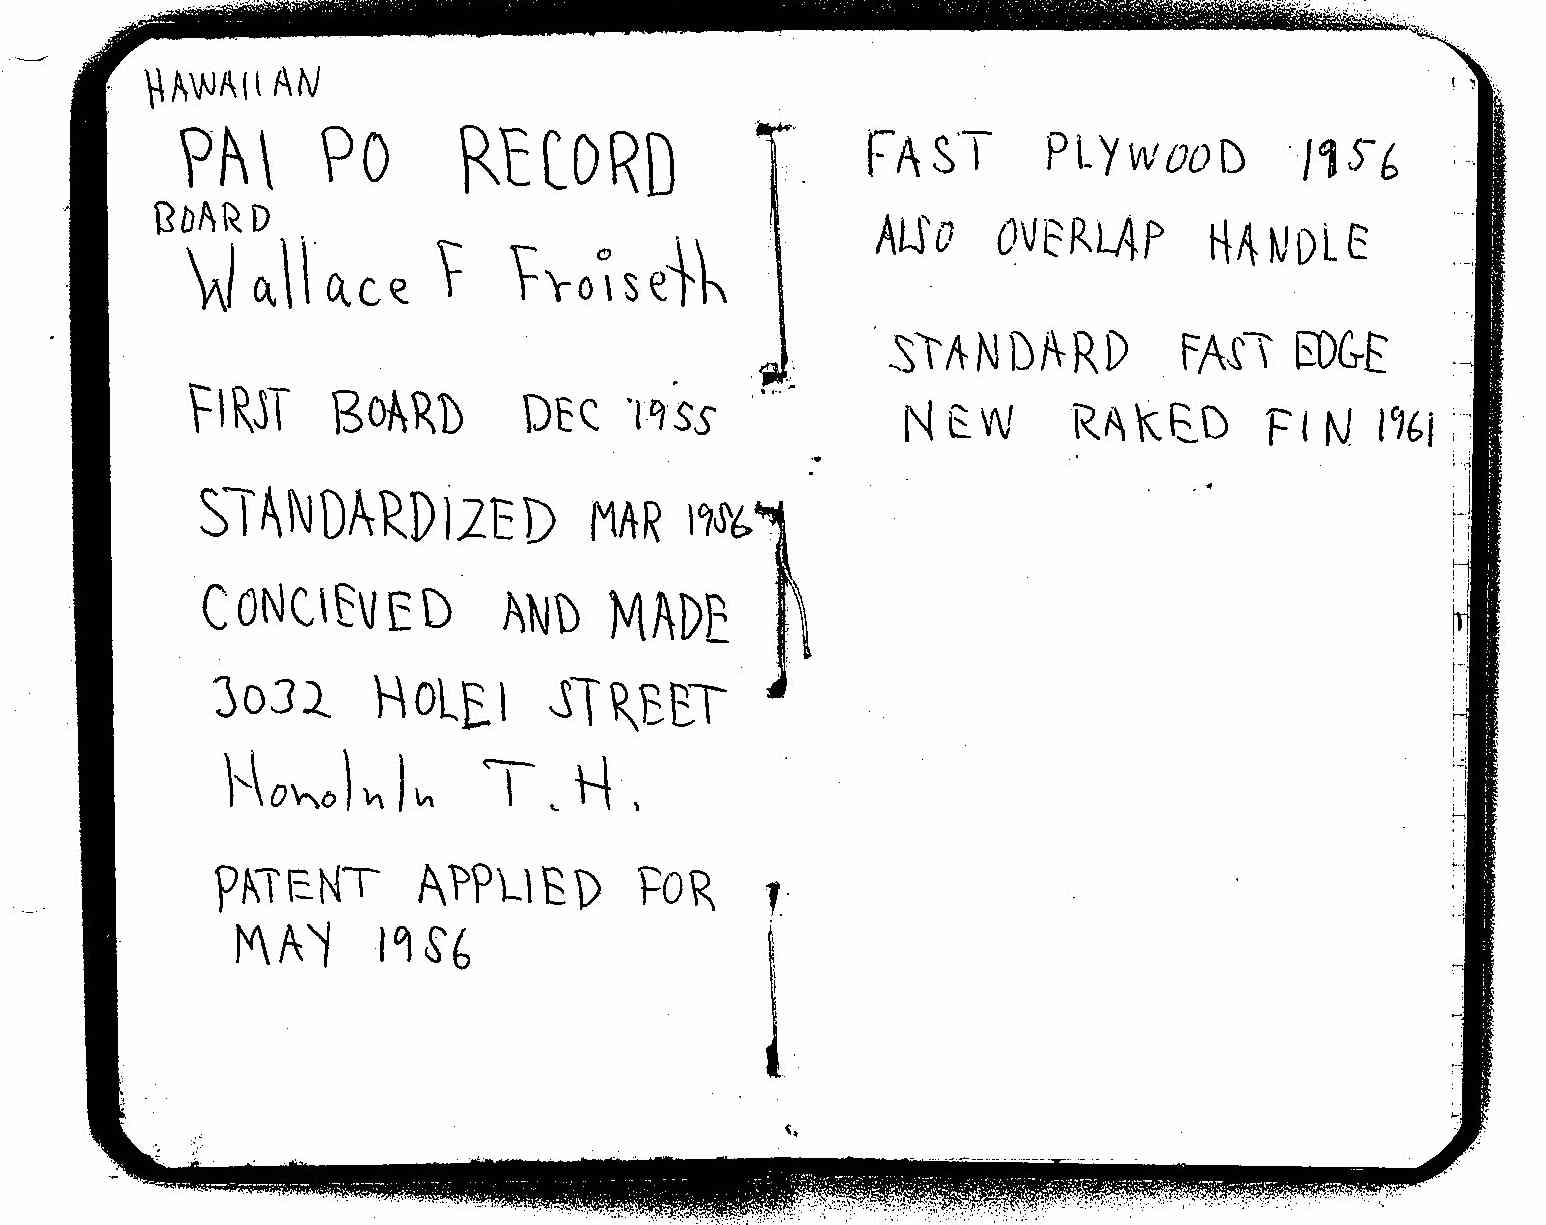 HAWAIIAN
PAI PO RECORD
BOARD
Wallace F Froiseth
FIRST BOARD DEC 1955
STANDARDIZED MAR 1956
CONCIEVED AND MADE
3032 HOLEI STREET
Honolulu T.H.
PATENT APPLIED FOR
MAY 1956
FAST PLYWOOD 1956
ALSO OVERLAP HANDLE
STANDARD FAST EDGE
NEW RAKED FIN 1961